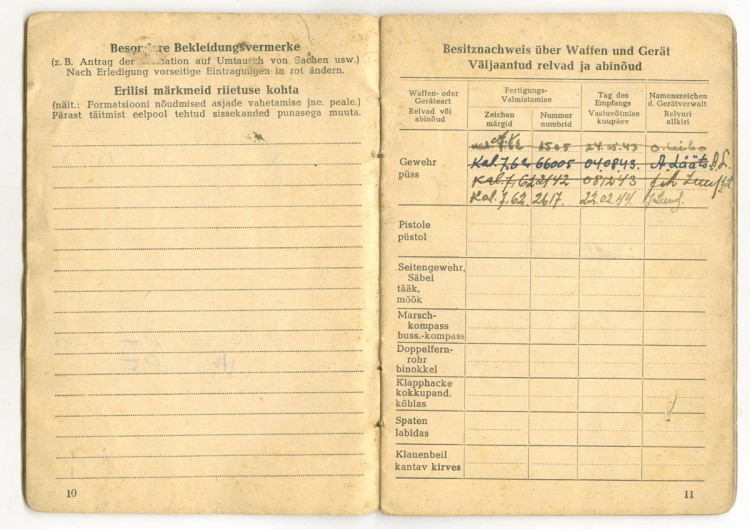 Besondere Bekleidungsvermerke
(z. B. Antrag der Formation auf Umtausch von Sachen usw.)
Nach Erledigung vorseitige Eintragungen in rot ändern.
Erilisi märkmeid riietuse kohta
(näit.: Formatsiooni nõudmised asjade vahetamise jne. peale.)
Pärast täitmist eelpool tehtud sissekanded punasega muuta.
10
Besitznachweis über Waffen und Gerät
Väljaantud relvad ja abinõud
Waffen- oder
Geräteart
Relvad või
abinõud
Fertigungs-
Valmistamise
Zeichen
märgid
Nummer
numbrid
Tag des
Empfangs
Vastuvõtmise
kuupäev
Namenszeichen
d. Gerätverwalt.
Relvuri
allkiri
Gewehr
püss
Kal. 7.62 1505 24.05.43
Kal. 7.62 66005 04.08.43. A. Lääts
Kal. 7,62 2142 081243
Kal. 7.62. 2617. 22.02.44.
Pistole
püstol
Seitengewehr,
Säbel
tääk,
mõõk
Marsch-
kompass
buss.-kompass
Doppelfern-
rohr
binokkel
Klapphacke
kokkupand.
kõblas
Spaten
labidas
Klauenbeil
kantav kirves
11